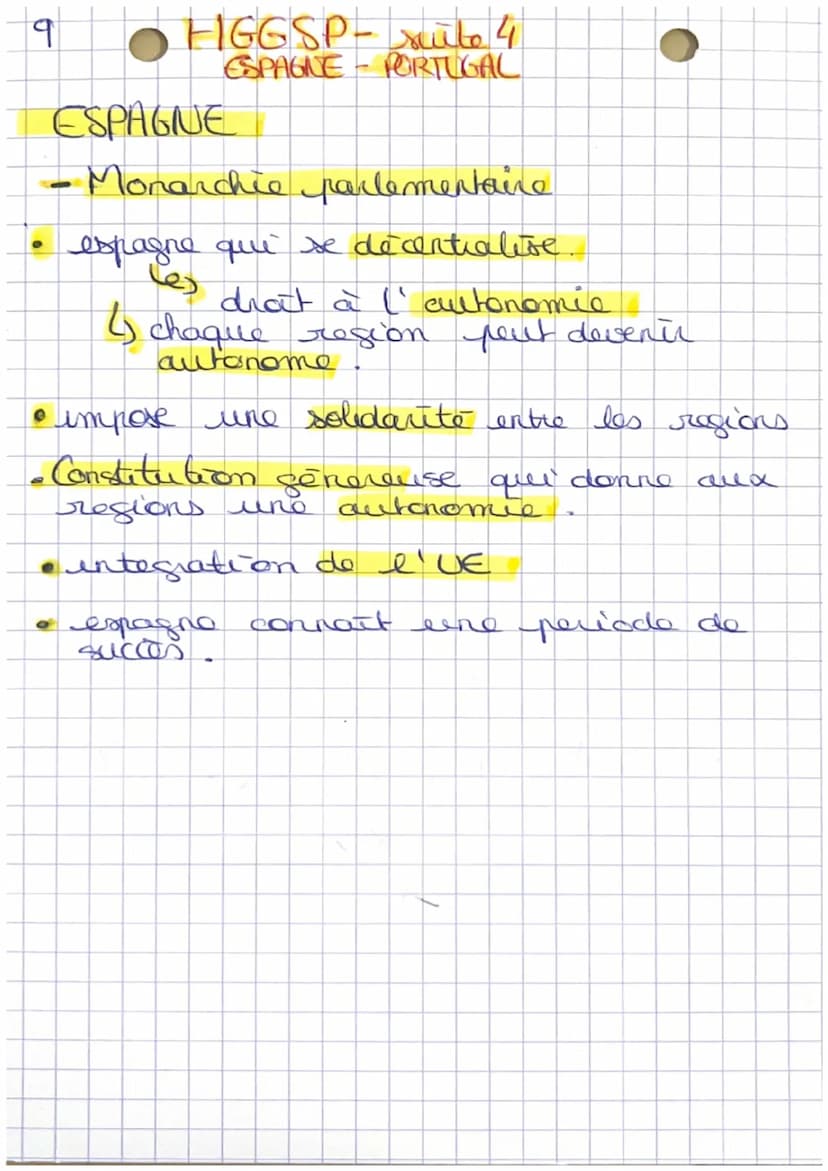 9
HGGSP - suite 4
ESPAGNE - PORTUGAL
ESPAGNE
- Monarchie parlementaire
• espagne qui se décentralise.
↳ droit à l'autonomie
↳ chaque region peut devenir
autonome.
• impose une solidarité entre les regions
• Constitution génereuse qui donne aux
regions une autonomie.
• integration de l'UE
• espagne connaît une periode de
succès.